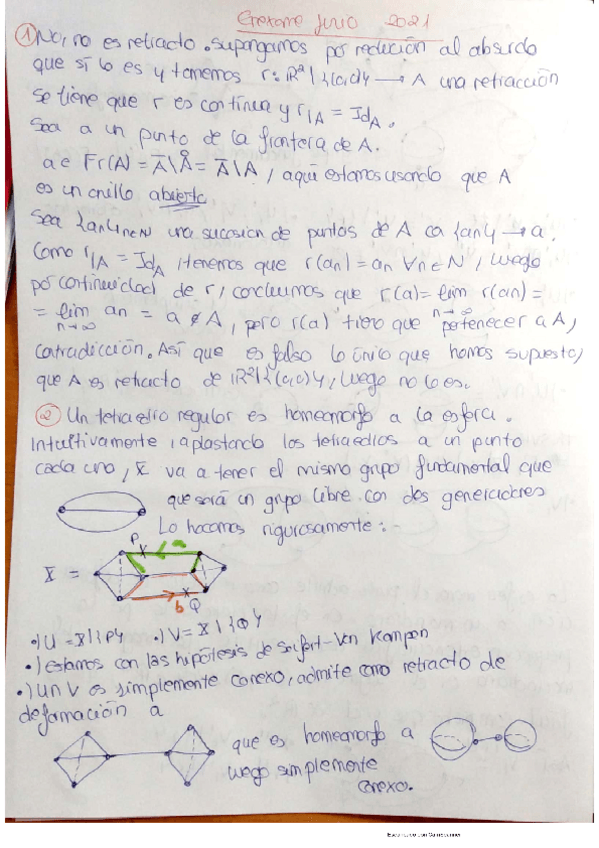 Exexame junio 2021
① No, no es retracto. Supongamos por reducción al absurdo
que sí lo es y tomemos r: ℝ²\{(0,0)} → A una retracción
Se tiene que r es continua y r|A = IdA.
Sea a un punto de la frontera de A.
a ∈ Fr(A) = Ā\Å = Ā\A, aquí estamos usando que A
es un anillo abierto
Sea {an}n∈N una sucesión de puntos de A con {an} → a.
Como r|A = IdA, tenemos que r(an) = an ∀n∈N, luego
por continuidad de r, concluimos que r(a) = lim n→∞ r(an) =
= lim n→∞ an = a ∉ A, pero r(a) tiene que pertenecer a A,
contradicción. Así que es falso lo único que hemos supuesto,
que A es retracto de ℝ²\{(0,0)}, luego no lo es.
② Un tetraedro regular es homeomorfo a la esfera.
Intuitivamente, aplastando los tetraedros a un punto
cada uno, X va a tener el mismo grupo fundamental que
que será un grupo libre con dos generadores
Lo hacemos rigurosamente:
P a
X =
b Q
·) U = X\{P} ·) V = X\{Q}
·) estamos con las hipótesis de Seifert-Van Kampen
·) U∩V es simplemente conexo, admite como retracto de
deformación a
que es homeomorfo a
luego simplemente
conexo.
Escaneado con CamScanner